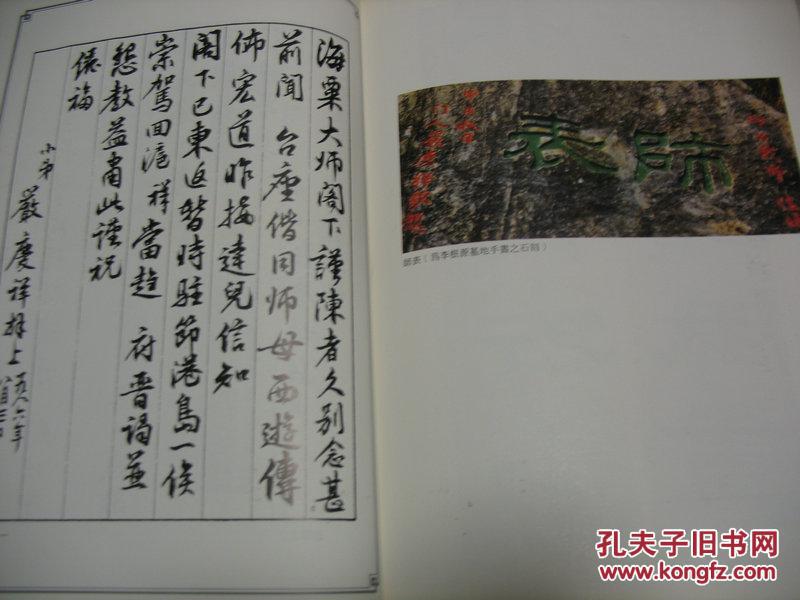 海粟大师阁下謹陳者久别念甚
前聞 台座偕同师母西遊傳
佈宏道昨接達兒信知
阁下已東返暂時駐節港島一俟
崇駕回滬祥當趋 府晋謁並
懇教益肅此謹祝
儷福
小弟 嚴慶祥拜上
一九八六年
師表
師表（爲李根源墓地手書之石刻）
孔夫子旧书网
www.kongfz.com